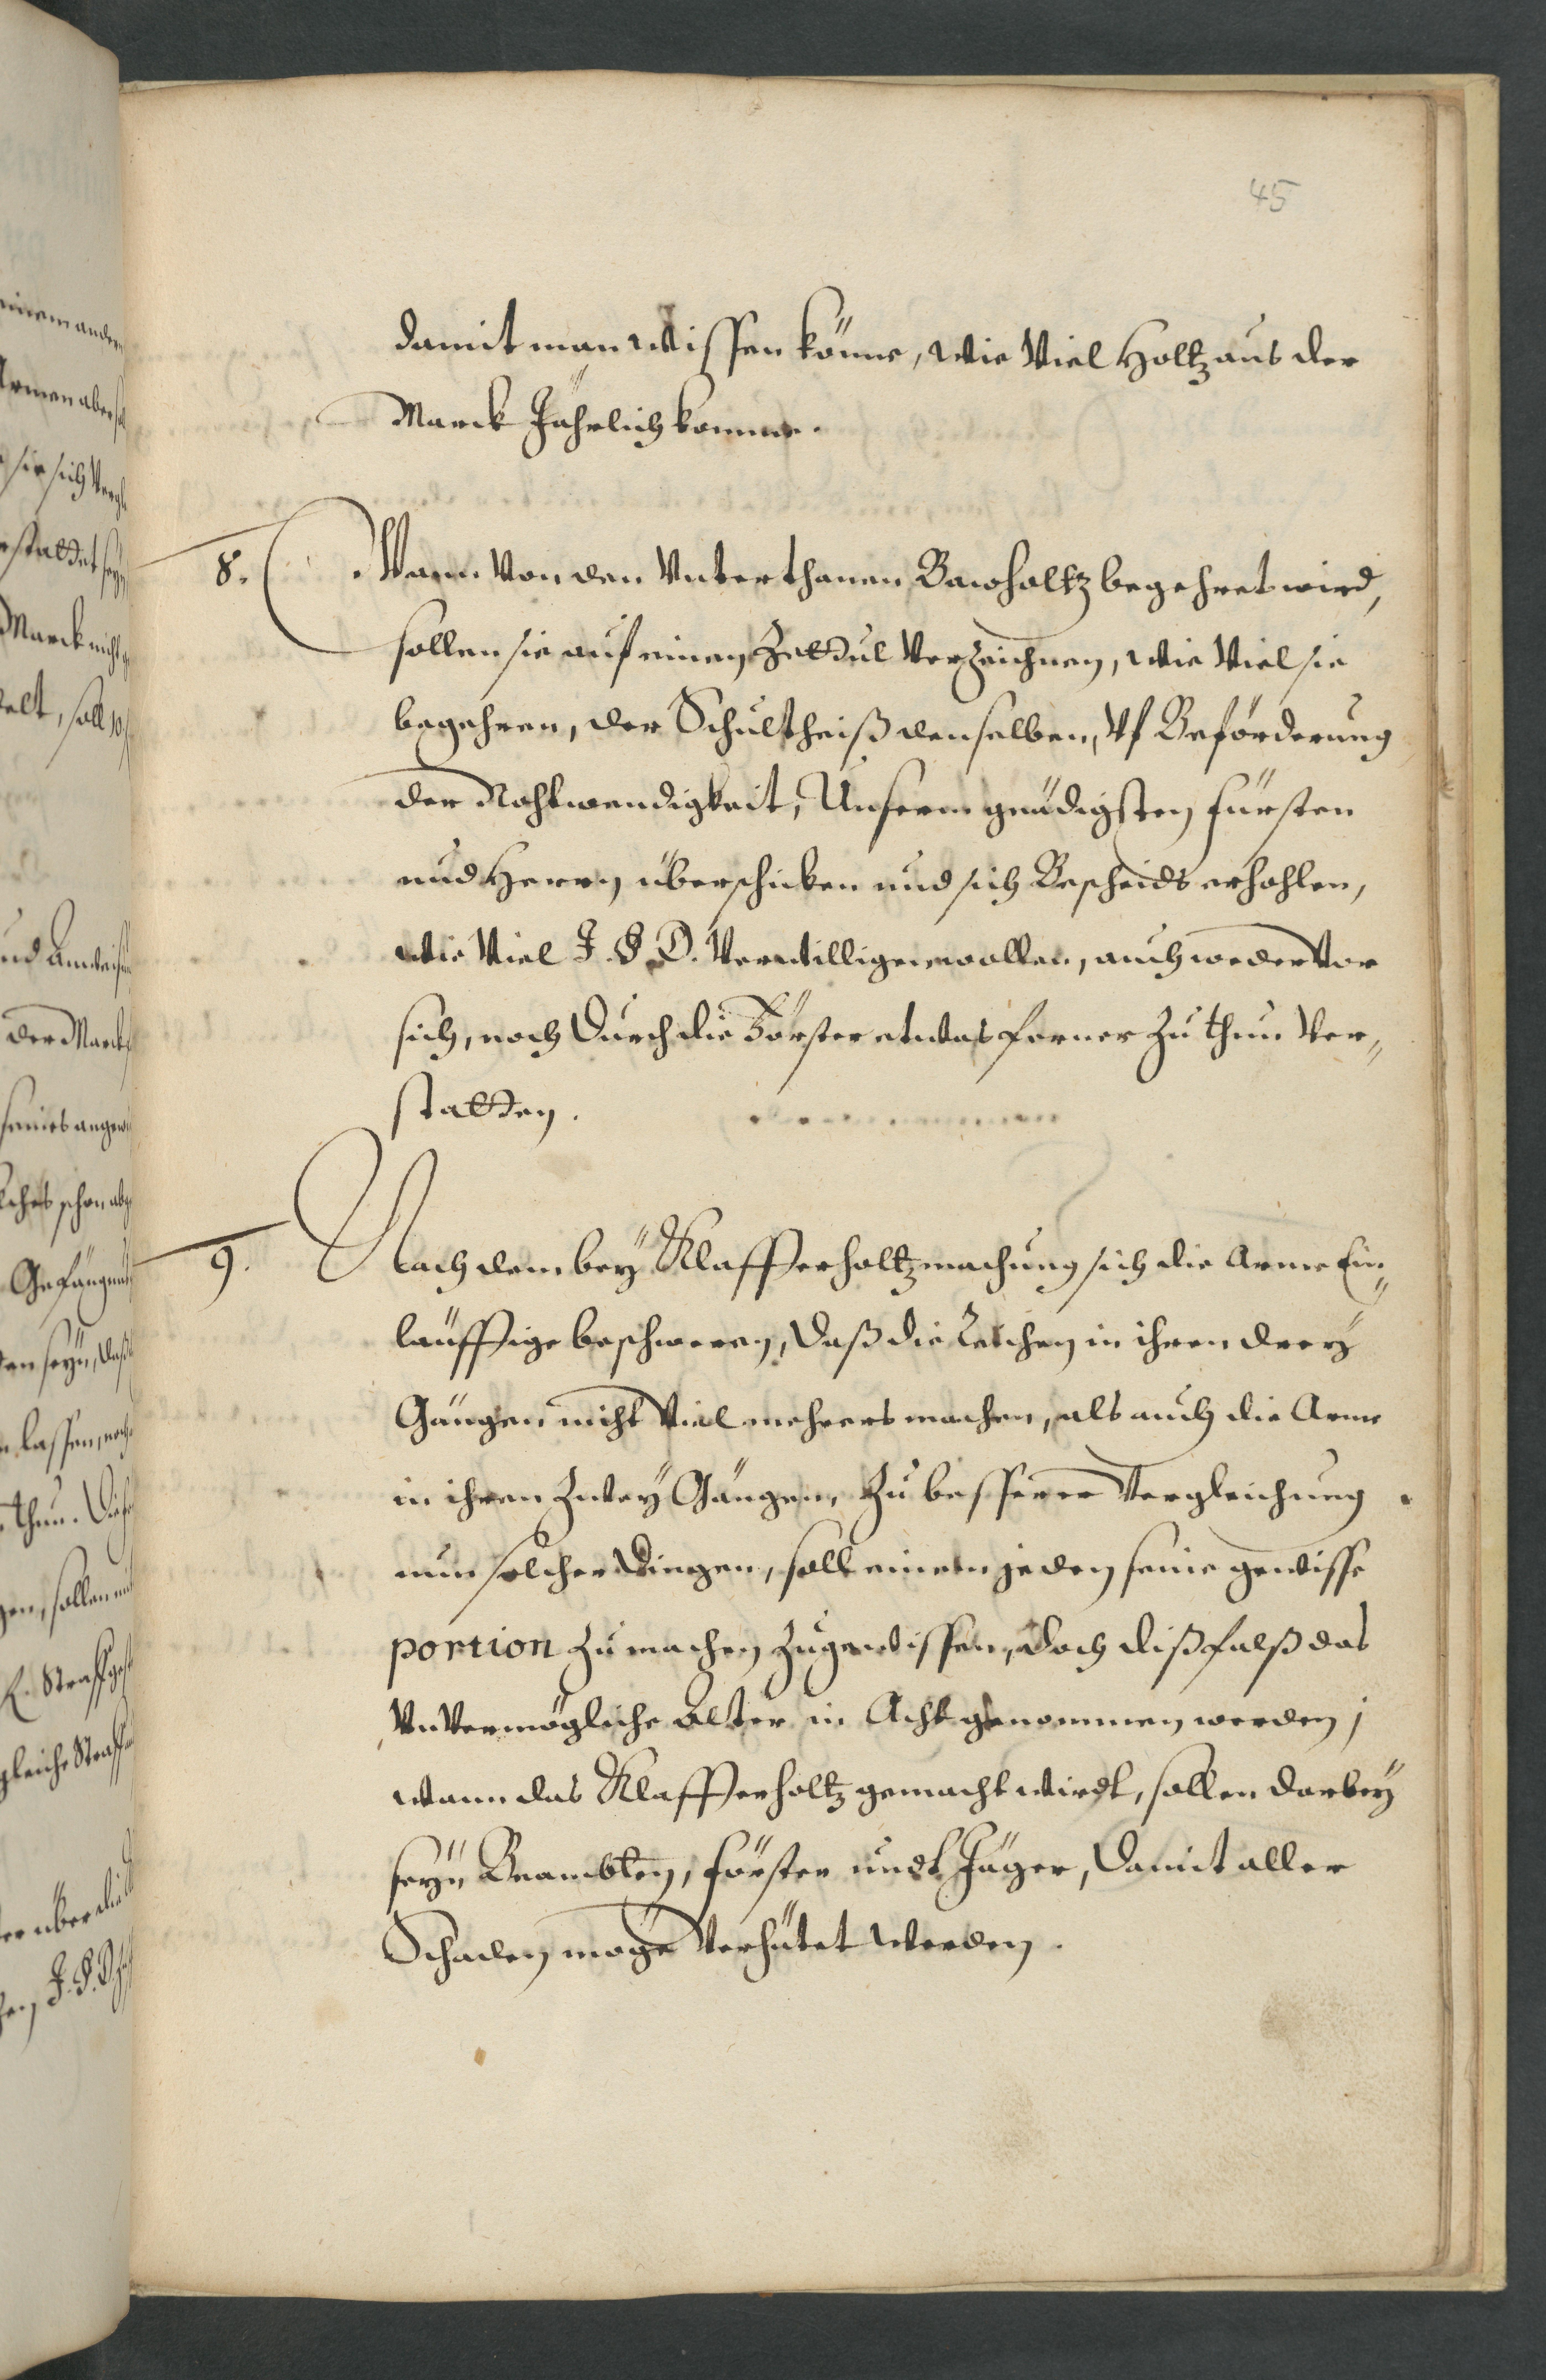 45
damit man wissen könne, wie viel Holtz aus der
Marck Jährlich komme.
8. Wann von den Unterthanen Bawholtz begehret wird,
sollen sie auf einen Zettul verzeichnen, wie viel sie
begehren, der Schultheiß denselben, uf Beförderung
der Nohtwendigkeit, Unserm gnädigsten Fürsten
und Herrn überschicken und sich Bescheids erhohlen,
wie viel J. F. D. verwilligen wollen, auch weder vor
sich, noch durch die Förster etwas ferner zu thun ver„
statten.
9. Nach dem bey Klaffterholtzmachung sich die Arme Ein„
läuffige beschweren, daß die Reichen in ihren drey
Gängen nicht viel mehrers machen, als auch die Arme
in ihren zwey Gängen, zu besserer Vergleichung
nun solcher Dingen, soll einem jeden seine gewisse
portion zu machen zugewissen, doch dißfalß das
unvermögliche Alter in Acht genommen werden;
wann das Klaffterholtz gemacht wirdt, sollen darbey
seyn Beambten, Förster undt Jäger, damit aller
Schaden möge verhütet werden.